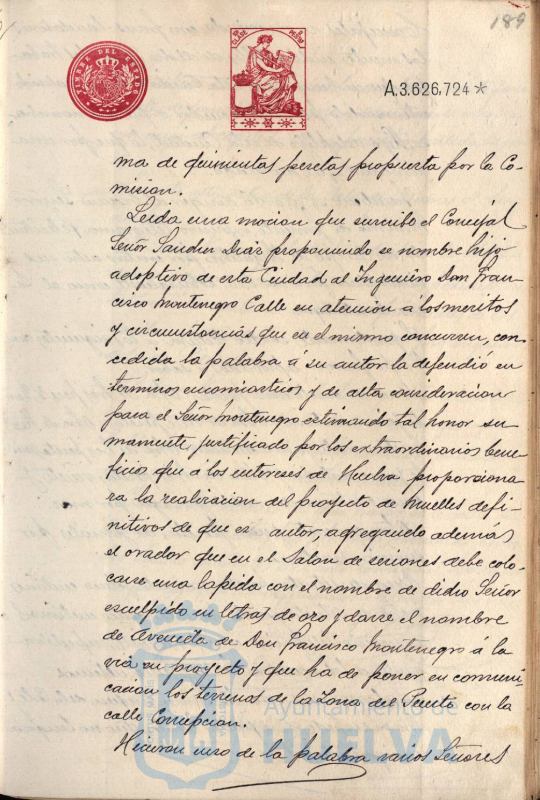 189
TIMBRE DEL ESTADO
CLASE
A.3.626.724*
ma de quinientas pesetas propuesta por la Co-
mision.
Leida una mocion que suscribe el Concejal
Señor Sanchez Diaz proponiendo se nombre hijo
adoptivo de esta Ciudad al Ingeniero Don Fran-
cisco Montenegro Calle en atención á los meritos
y circunstancias que en el mismo concurren, con-
cedida la palabra á su autor la defendió en
terminos encomiasticos y de alta consideracion
para el Señor Montenegro estimando tal honor su
mamente justificado por los extraordinarios bene-
ficios que a los intereses de Huelva proporciona
ra la realizacion del proyecto de Muelles defi-
nitivos de que es autor, agregando además
el orador que en el Salon de sesiones debe colo-
carse una lapida con el nombre de dicho Señor
esculpido en letras de oro y darse el nombre
de Avenida de Don Francisco Montenegro á la
via en proyecto y que ha de poner en comuni-
cacion los terrenos de la Zona del Puerto con la
calle Concepcion.
Ayuntamiento de
HUELVA
Hicieron uso de la palabra varios Señores